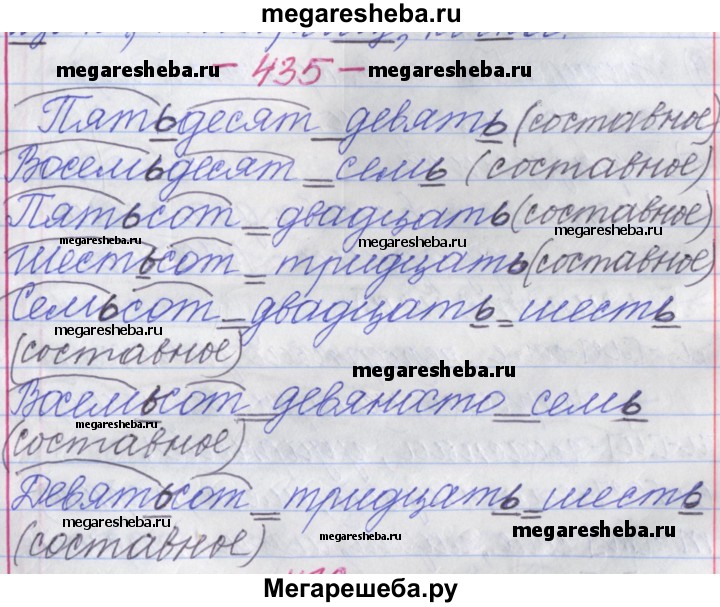 megaresheba.ru
megaresheba.ru - 435 - megaresheba.ru
Пятьдесят девять (составное)
Восемьдесят семь (составное)
megaresheba.ru
Пятьсот двадцать (составное)
megaresheba.ru megaresheba.ru megaresheba.ru
Шестьсот тридцать (составное)
Семьсот двадцать шесть
megaresheba.ru
(составное)
megaresheba.ru
Восемьсот девяносто семь
(составное)
Девятьсот тридцать шесть
megaresheba.ru megaresheba.ru megaresheba.ru
(составное)
Мегарешеба.ру